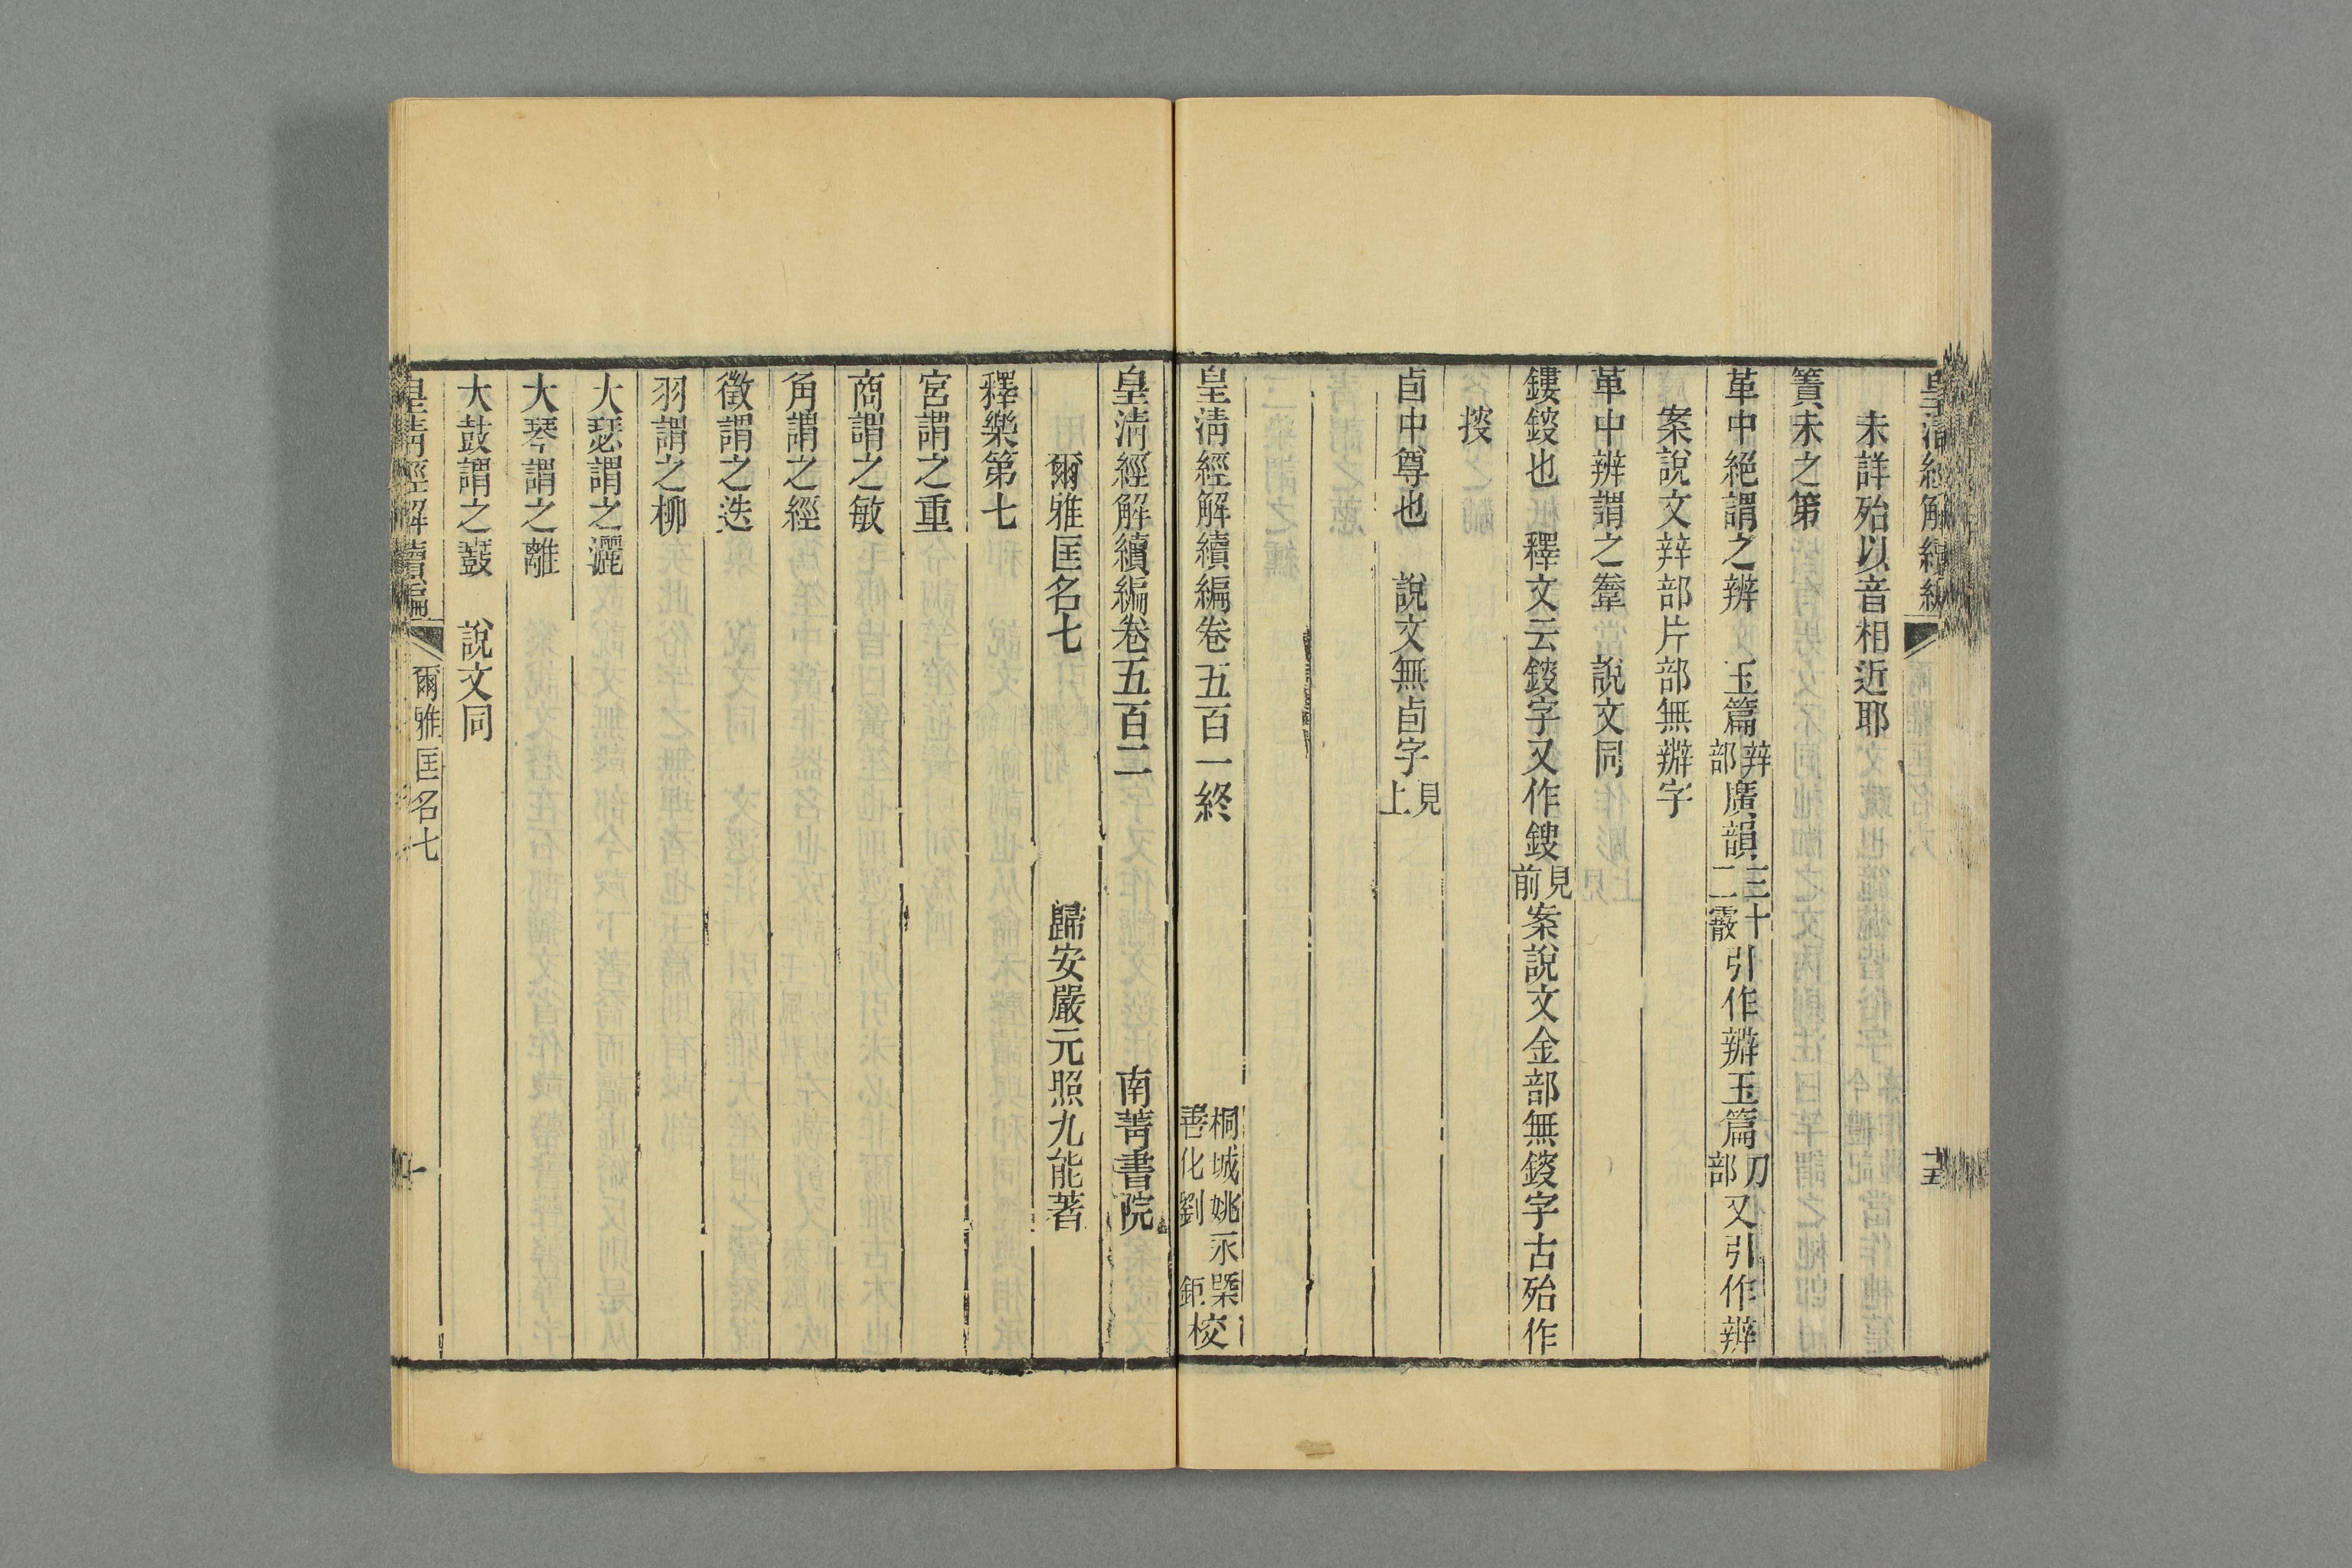 皇清經解續編
十五
未詳殆以音相近耶
簀未之第
革中絕謂之辨　玉篇辡部廣韻三十二霰引作辦玉篇刀部又引作辨
案說文辡部片部無辦字
革中辨謂之韏　說文同
鏤錽也　釋文云錽字又作鋄見前案說文金部無錽字古殆作
㨄
卣中尊也　說文無卣字見上
皇清經解續編卷五百一終
桐城姚永㮣
善化劉鉅
校
皇清經解續編卷五百二
南菁書院
爾雅匡名七
歸安嚴元照九能著
釋樂第七
宮謂之重
商謂之敏
角謂之經
徵謂之迭
羽謂之柳
大瑟謂之灑
大琴謂之離
大鼓謂之鼖　說文同
皇清經解續編
爾雅匡名七
一